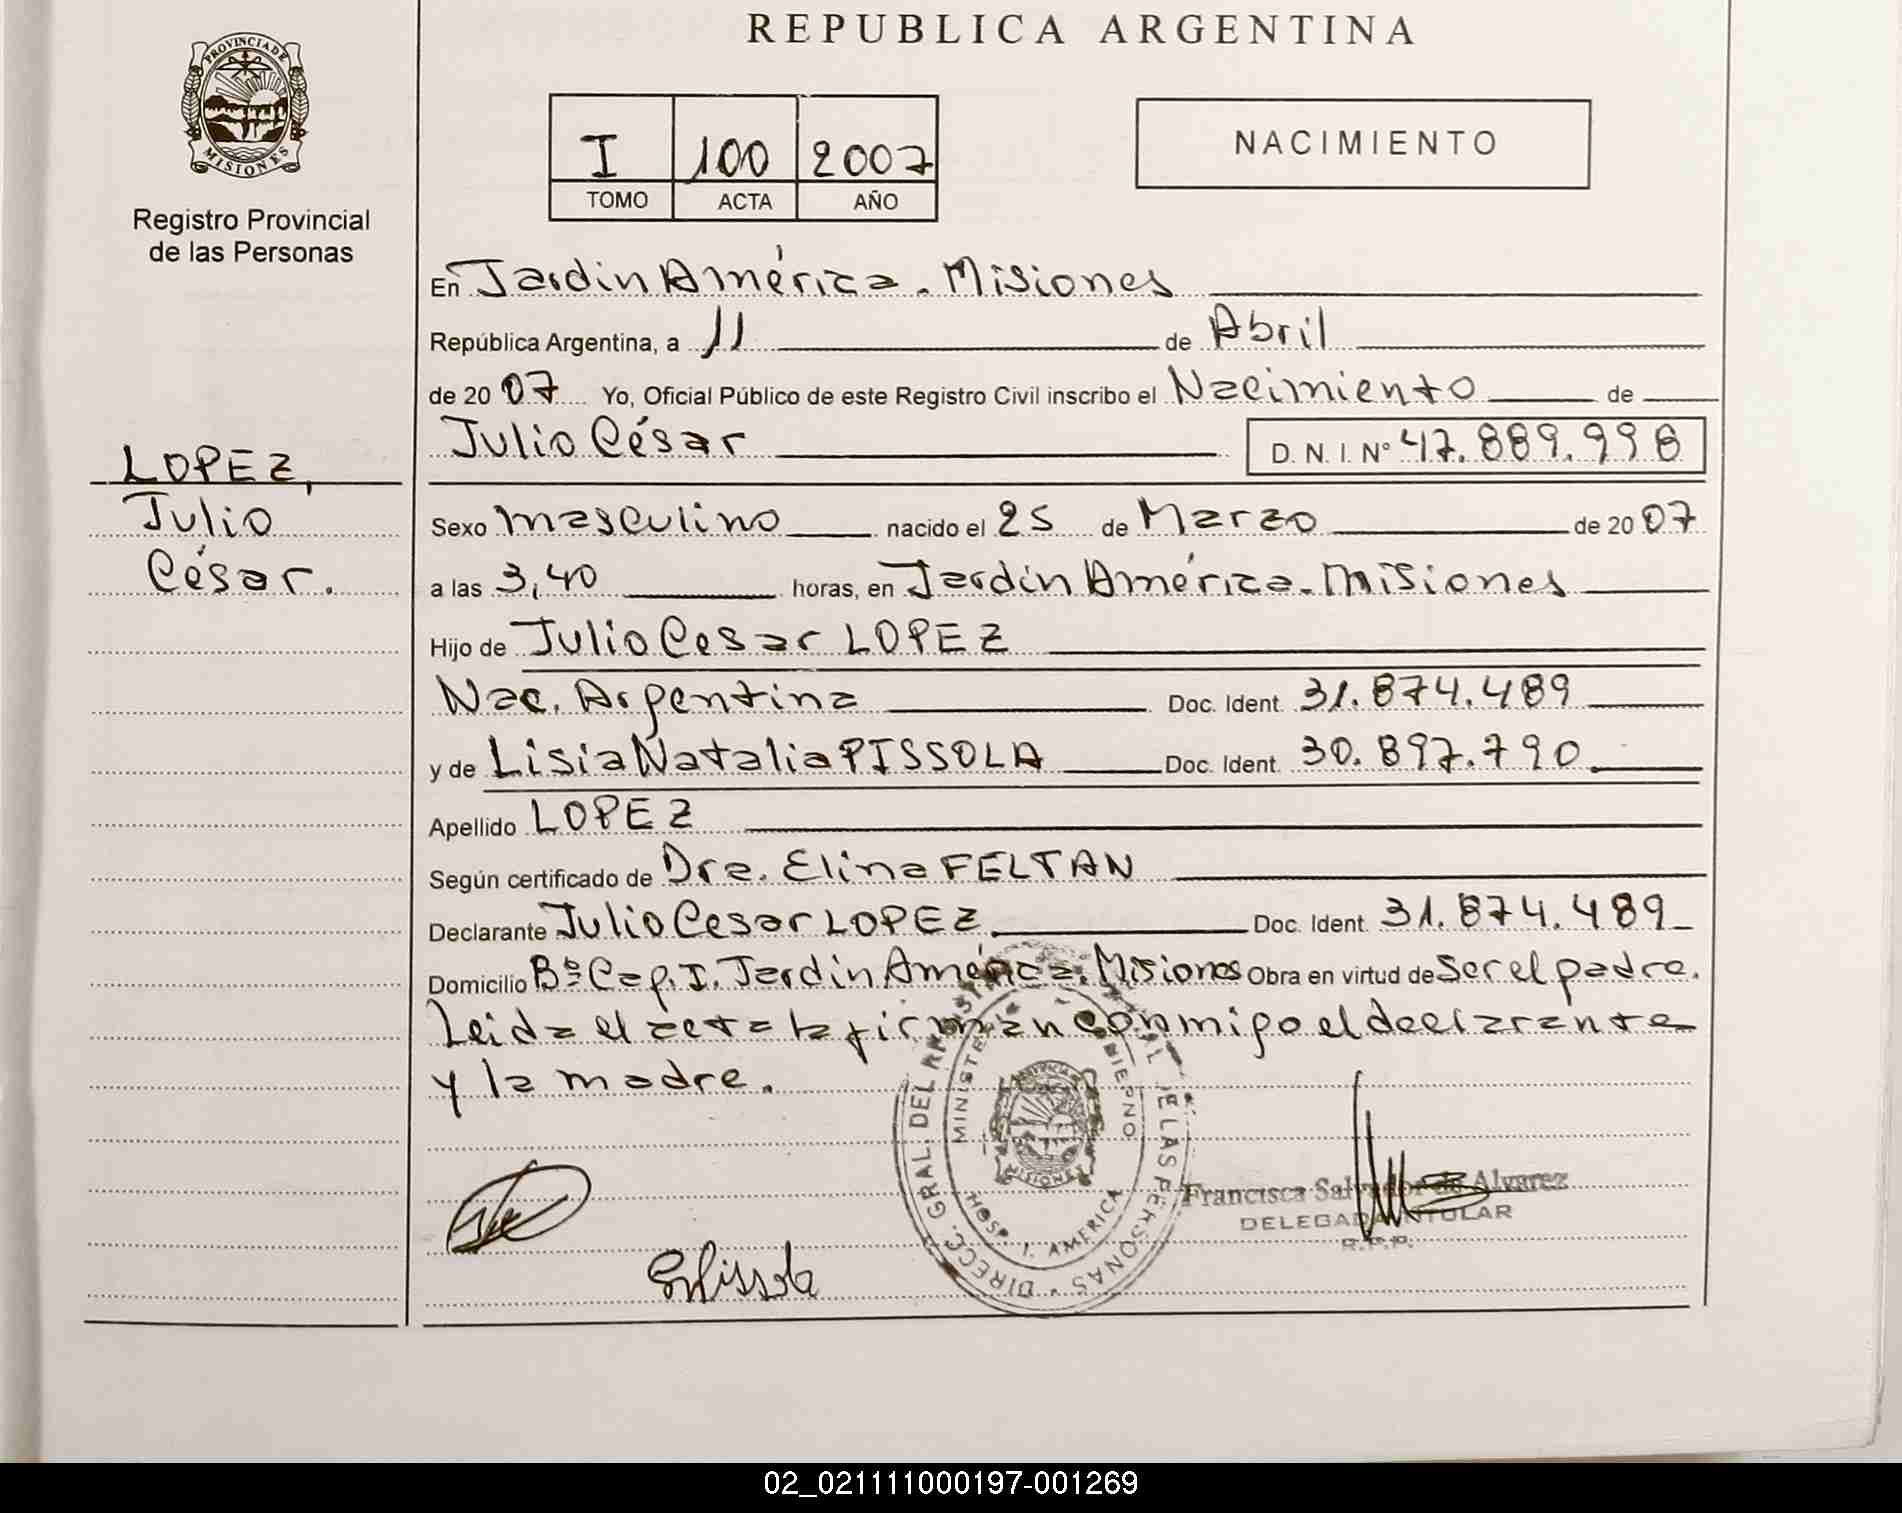 REPUBLICA ARGENTINA
PROVINCIA DE
MISIONES
Registro Provincial
de las Personas
I 100 2007
TOMO ACTA AÑO
NACIMIENTO
En Jardin América. Misiones
República Argentina, a 11 de Abril
de 2007 Yo, Oficial Público de este Registro Civil inscribo el Nacimiento de
Julio César D.N.I. Nº 47.889.998
LOPEZ,
Julio
César.
Sexo masculino nacido el 25 de Marzo de 2007
a las 3,40 horas, en Jardín América. Misiones
Hijo de Julio Cesar LOPEZ
Nac. Argentina Doc. Ident. 31.874.489
y de Lisia Natalia PISSOLA Doc. Ident. 30.897.790
Apellido LOPEZ
Según certificado de Dra. Elina FELTAN
Declarante Julio Cesar LOPEZ Doc. Ident. 31.874.489
Domicilio Bº Cap. I. Jardín América. Misiones Obra en virtud de Ser el padre.
Leida el acta la firman conmigo el declarante
y la madre.
DIRECC. GRAL. DEL DE LAS PERSONAS
MINISTERIO GOBIERNO
MISIONES
HOSP. I. AMERICA
Francisca Salvador de Alvarez
DELEGADA TITULAR
R.P.P.
Pissola
02_021111000197-001269